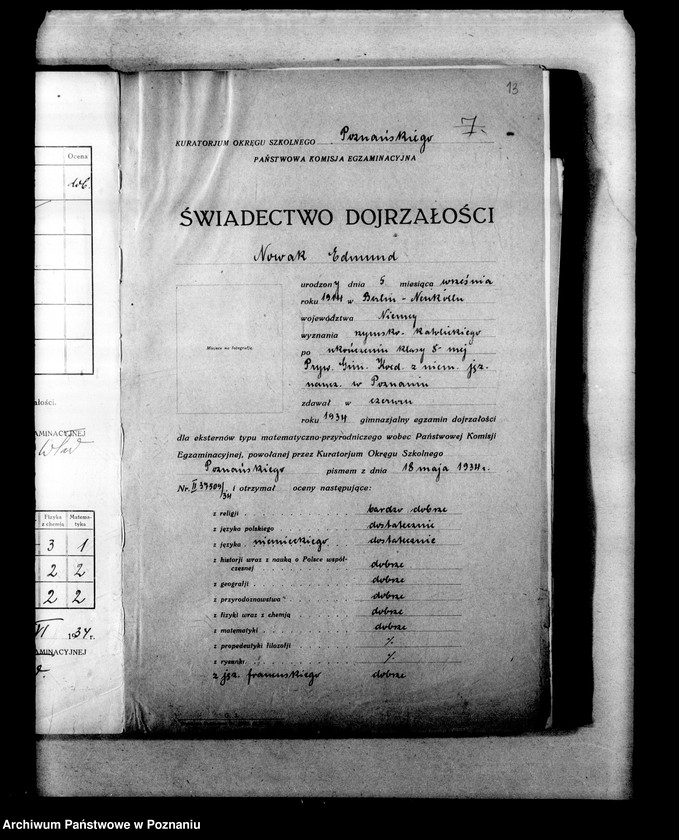 13
7.
KURATORJUM OKRĘGU SZKOLNEGO Poznańskiego
PAŃSTWOWA KOMISJA EGZAMINACYJNA
ŚWIADECTWO DOJRZAŁOŚCI
Nowak Edmund
urodzony dnia 5 miesiąca września
roku 1914 w Berlin - Neukölln
województwa Niemcy
wyznania rzymsko-katolickiego
po ukończeniu klasy 8-mej
Pryw. Gim. Koed. z niem. jęz.
naucz. w Poznaniu
zdawał w czerwcu
roku 1934 gimnazjalny egzamin dojrzałości
Miejsce na fotografję
dla eksternów typu matematyczno-przyrodniczego wobec Państwowej Komisji
Egzaminacyjnej, powołanej przez Kuratorjum Okręgu Szkolnego
Poznańskiego pismem z dnia 18 maja 1934 r.
Nr. II 37509/34 i otrzymał oceny następujące:
z religji bardzo dobrze
z języka polskiego dostatecznie
z języka niemieckiego dostatecznie
z historji wraz z nauką o Polsce współ-
czesnej dobrze
z geografji dobrze
z przyrodoznawstwa dobrze
z fizyki wraz z chemją dobrze
z matematyki dobrze
z propedeutyki filozofji
z rysunku
z jęz. francuskiego dobrze
Ocena
dob.
AMINACYJNEJ
Fizyka z chemją Matema-tyka
3 1
2 2
2 2
VI 1934 r.
AMINACYJNEJ
Archiwum Państwowe w Poznaniu